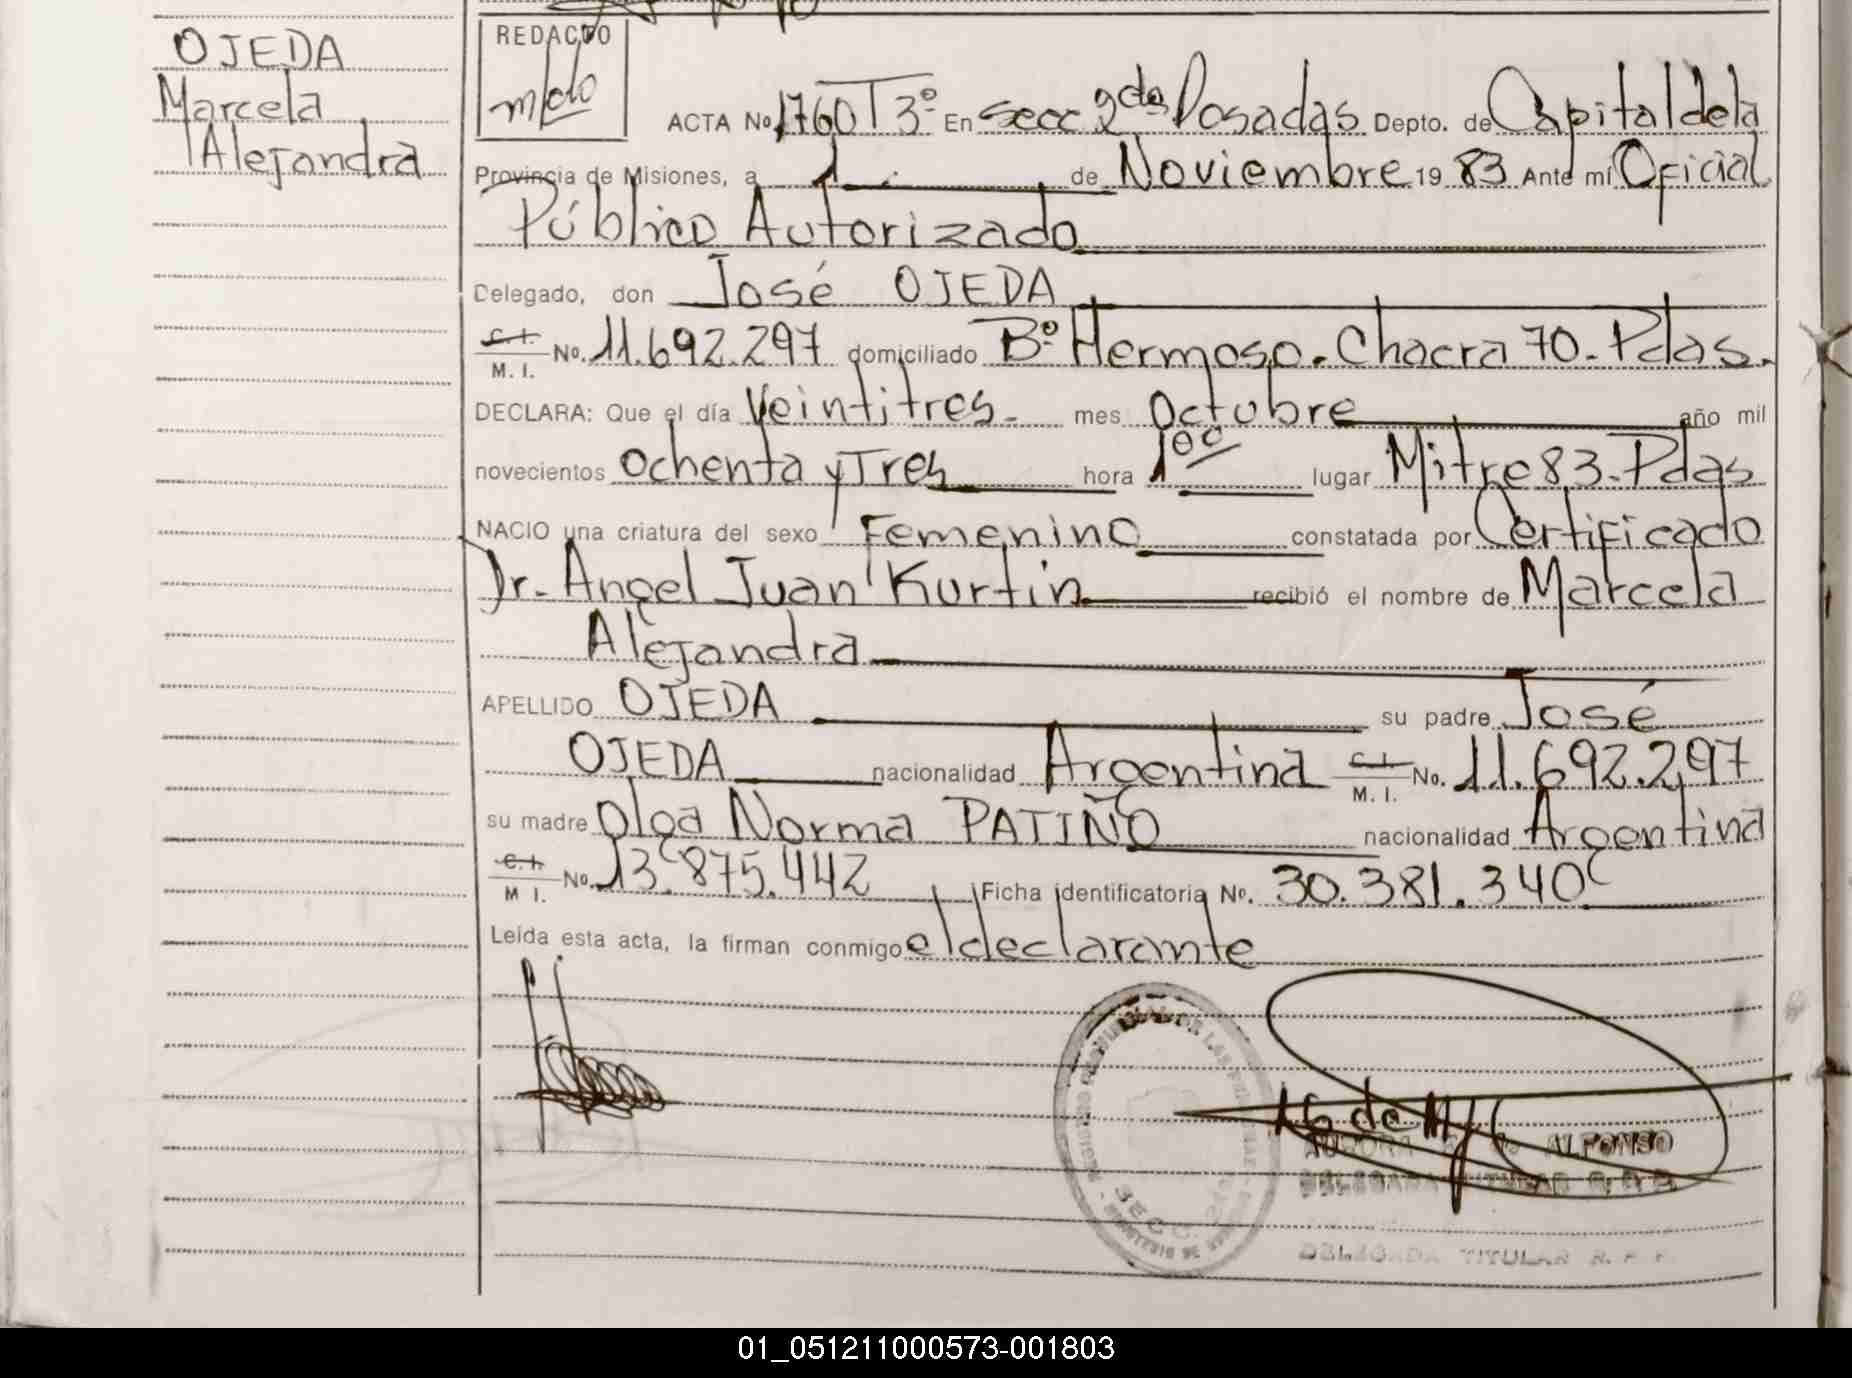 OJEDA
Marcela
Alejandra
REDACTO
ACTA No 1760 T 3º En secc 2da Posadas Depto. de Capital de la
Provincia de Misiones, a 1 de Noviembre 19 83 Ante mí Oficial
Público Autorizado
Delegado, don José OJEDA
C.I. M. I. No. 11.692.297 domiciliado Bº Hermoso. Chacra 70. Pdas.
DECLARA: Que el día Veintitres mes Octubre año mil
novecientos Ochenta y Tres hora 1 00 lugar Mitre 83. Pdas
NACIO una criatura del sexo Femenino constatada por Certificado
Dr. Angel Juan Kurtin recibió el nombre de Marcela
Alejandra
APELLIDO OJEDA su padre José
OJEDA nacionalidad Argentina C.I. M. I. No. 11.692.297
su madre Olga Norma PATIÑO nacionalidad Argentina
C.I. M I. No. 13.875.442 Ficha identificatoria No. 30.381.340
Leída esta acta, la firman conmigo el declarante
ALFONSO
DELEGADA TITULAR R. P. P.
SECC. 2da
DELEGADA TITULAR R. P. P.
01_051211000573-001803